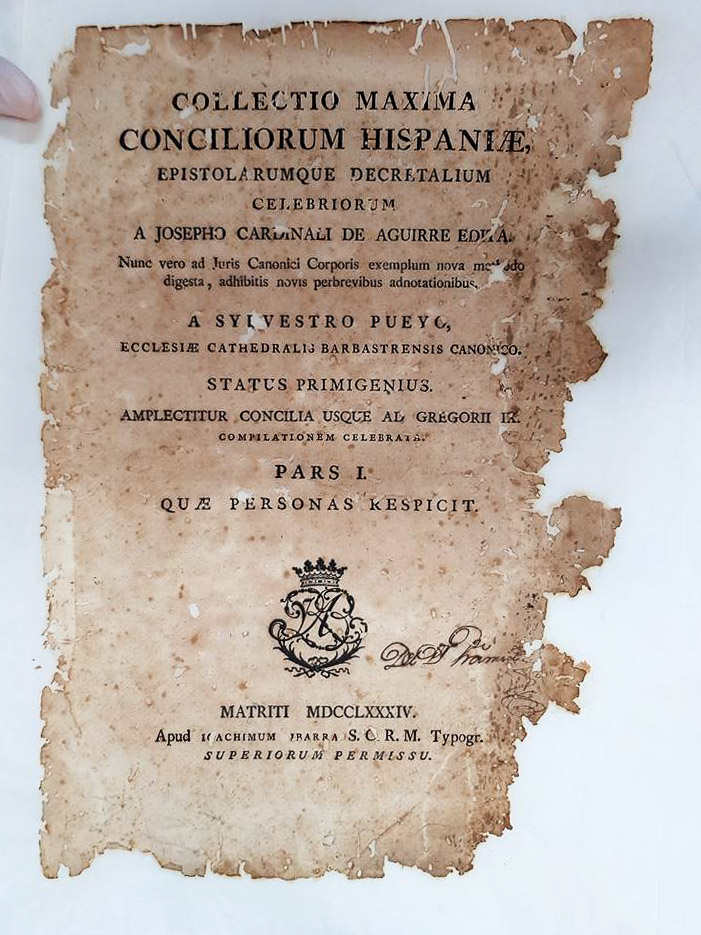 COLLECTIO MAXIMA
CONCILIORUM HISPANIÆ,
EPISTOLARUMQUE DECRETALIUM
CELEBRIORUM
A JOSEPHO CARDINALI DE AGUIRRE EDITA.
Nunc vero ad Juris Canonici Corporis exemplum nova methodo
digesta, adhibitis novis perbrevibus adnotationibus,
A SYLVESTRO PUEYO,
ECCLESIÆ CATHEDRALIS BARBASTRENSIS CANONICO.
STATUS PRIMIGENIUS.
AMPLECTITUR CONCILIA USQUE AD GREGORII IX.
COMPILATIONEM CELEBRATA.
PARS I.
QUÆ PERSONAS RESPICIT.
MATRITI MDCCLXXXIV.
Apud IOACHIMUM IBARRA S. C. R. M. Typogr.
SUPERIORUM PERMISSU.